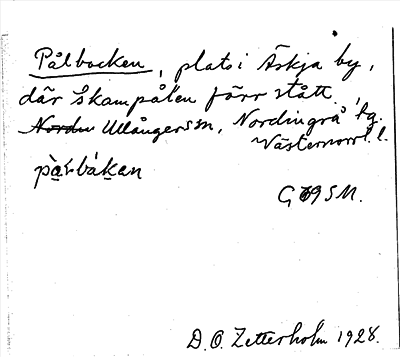 Pålbacken, plats i Äskja by,
där skampålen förr stått.
Ullångers sn, Nordingrå tg.
Västernorrl. l.
D. O. Zetterholm 1928.